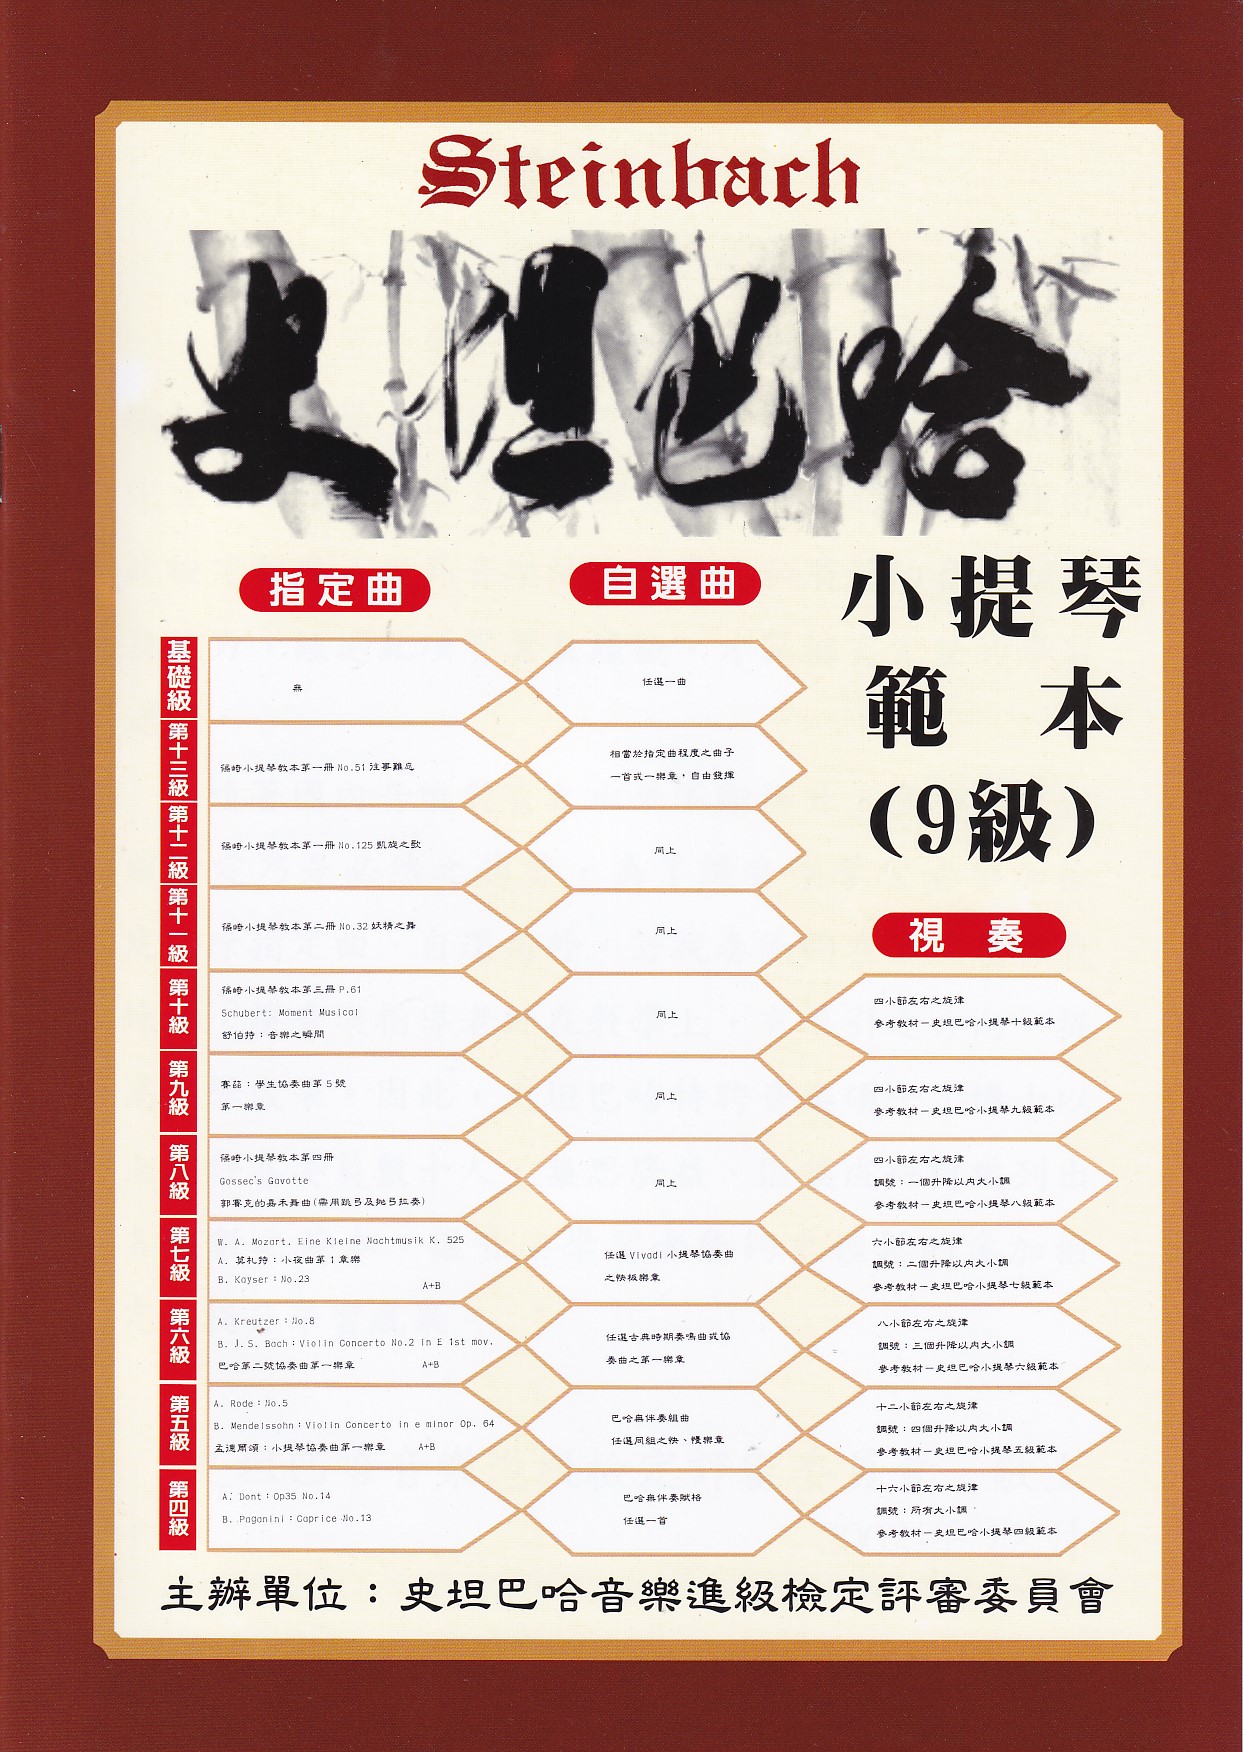 Steinbach
史坦巴哈
小提琴
範本
(9級)
指定曲
自選曲
視奏
基礎級
無
任選一曲
第十三級
篠崎小提琴教本第一冊 No.51 往事難忘
相當於指定曲程度之曲子
一首或一樂章，自由發揮
第十二級
篠崎小提琴教本第一冊 No.125 凱旋之歌
同上
第十一級
篠崎小提琴教本第二冊 No.32 妖精之舞
同上
第十級
篠崎小提琴教本第三冊 P.61
Schubert: Moment Musical
舒伯特：音樂之瞬間
同上
四小節左右之旋律
參考教材－史坦巴哈小提琴十級範本
第九級
賽茲：學生協奏曲第 5 號
第一樂章
同上
四小節左右之旋律
參考教材－史坦巴哈小提琴九級範本
第八級
篠崎小提琴教本第四冊
Gossec's Gavotte
郭賽克的嘉禾舞曲(需用跳弓及拋弓拉奏)
同上
四小節左右之旋律
調號：一個升降以內大小調
參考教材－史坦巴哈小提琴八級範本
第七級
W. A. Mozart. Eine Kleine Nachtmusik K. 525
A. 莫札特：小夜曲第 1 章樂
B. Kayser：No.23 A+B
任選 Vivadi 小提琴協奏曲
之快板樂章
六小節左右之旋律
調號：二個升降以內大小調
參考教材－史坦巴哈小提琴七級範本
第六級
A. Kreutzer：No.8
B. J.S. Bach：Violin Concerto No.2 in E 1st mov.
巴哈第二號協奏曲第一樂章 A+B
任選古典時期奏鳴曲或協
奏曲之第一樂章
八小節左右之旋律
調號：三個升降以內大小調
參考教材－史坦巴哈小提琴六級範本
第五級
A. Rode：No.5
B. Mendelssohn：Violin Concerto in e minor Op. 64
孟德爾頌：小提琴協奏曲第一樂章 A+B
巴哈無伴奏組曲
任選同組之快、慢樂章
十二小節左右之旋律
調號：四個升降以內大小調
參考教材－史坦巴哈小提琴五級範本
第四級
A. Dont：Op35 No.14
B. Paganini：Caprice No.13
巴哈無伴奏賦格
任選一首
十六小節左右之旋律
調號：所有大小調
參考教材－史坦巴哈小提琴四級範本
主辦單位：史坦巴哈音樂進級檢定評審委員會